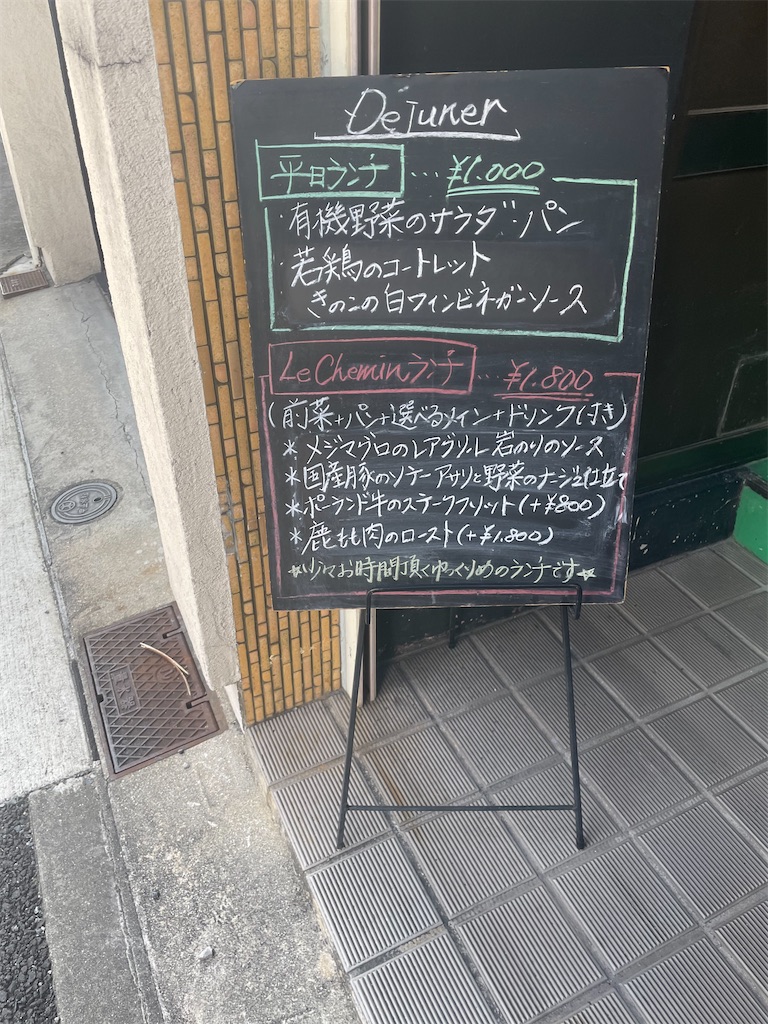 Déjuner
平日ランチ … ¥1.000
有機野菜のサラダ・パン
若鶏のコートレット
きのこの白ワインビネガーソース
Le Cheminランチ … ¥1.800
(前菜+パン+選べるメイン+ドリンク付き)
*メジマグロのレアグリル 岩のりのソース
*国産豚のソテー アサリと野菜のナージュ仕立て
*ポーランド牛のステークフリット(+¥800)
*鹿もも肉のロースト(+¥1.800)
☆少々お時間頂くゆっくりめのランチです☆